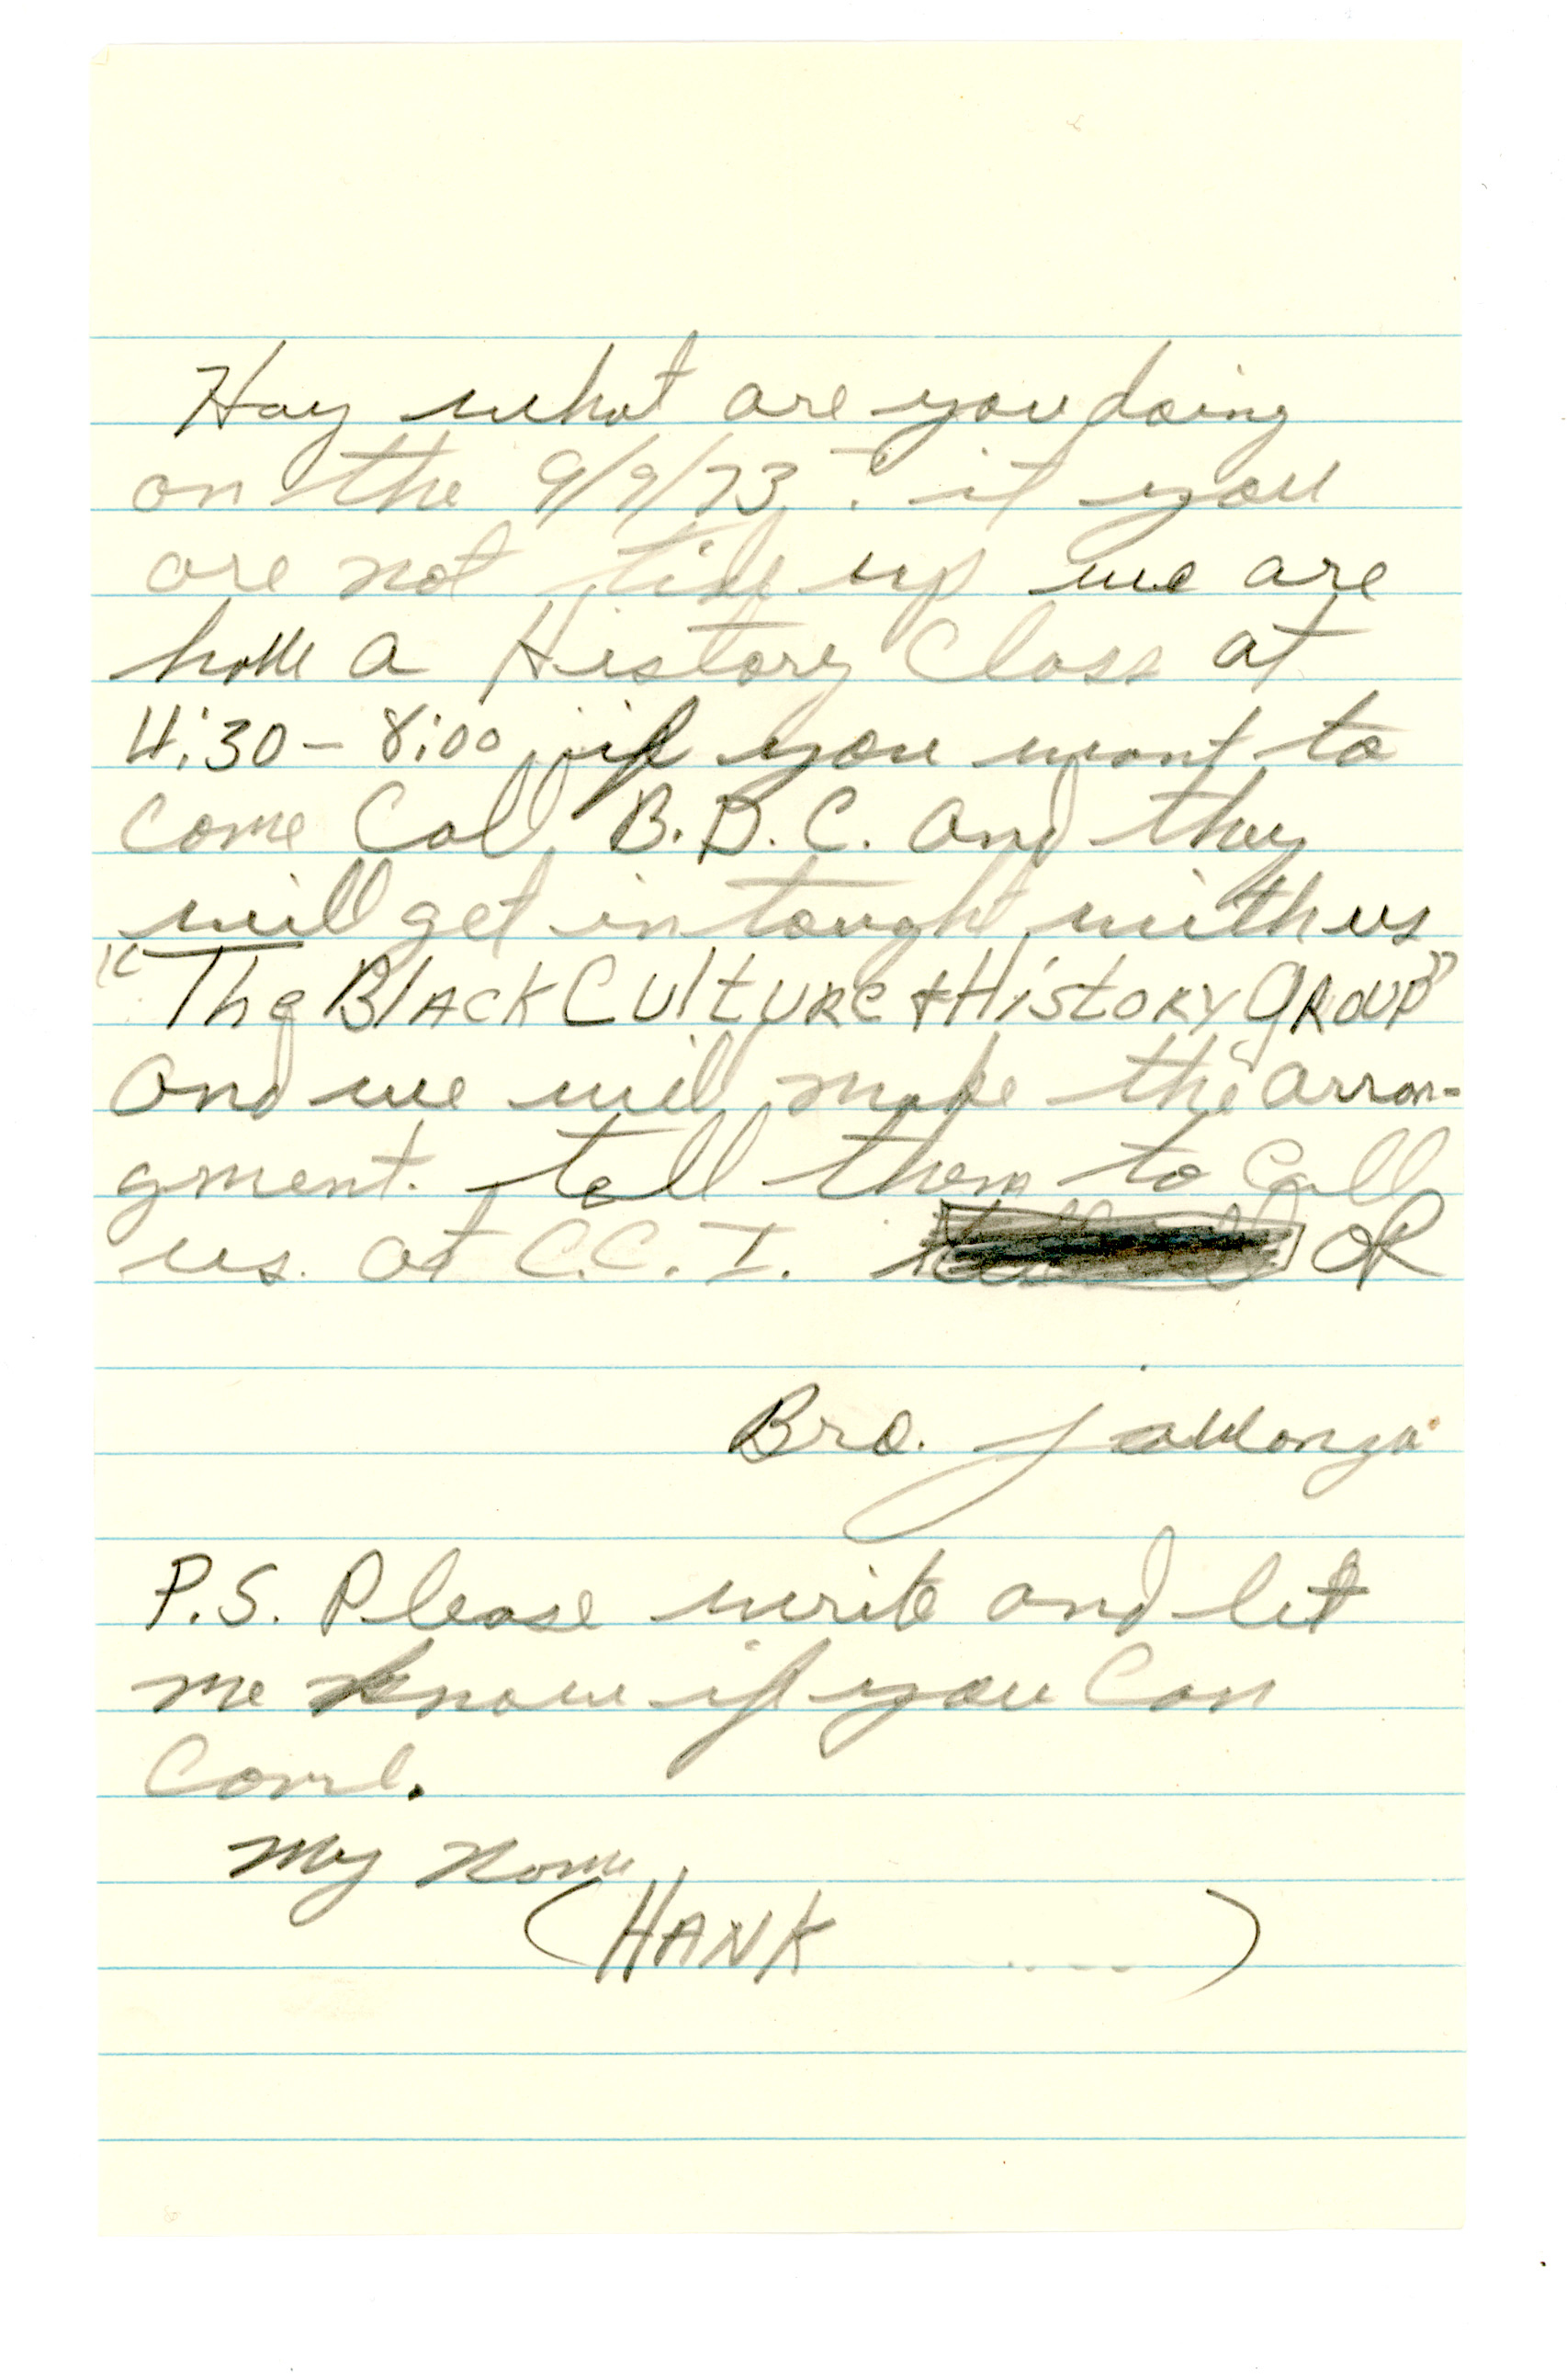 Hay what are you doing
on the 9/9/73 . if you
are not up we are
have a History Class at
4:30 - 8:00, if you want to
come Call B.D.C. and they
will get in tought with us
"The BlACK CUltURE + HiStORY GROUP"
and we will make the arran-
gment. tell them to Call
us. at C.C.I. OR
Bro.
P.S. Please write and let
me know if you Can
Come.
My Name
(HANK )